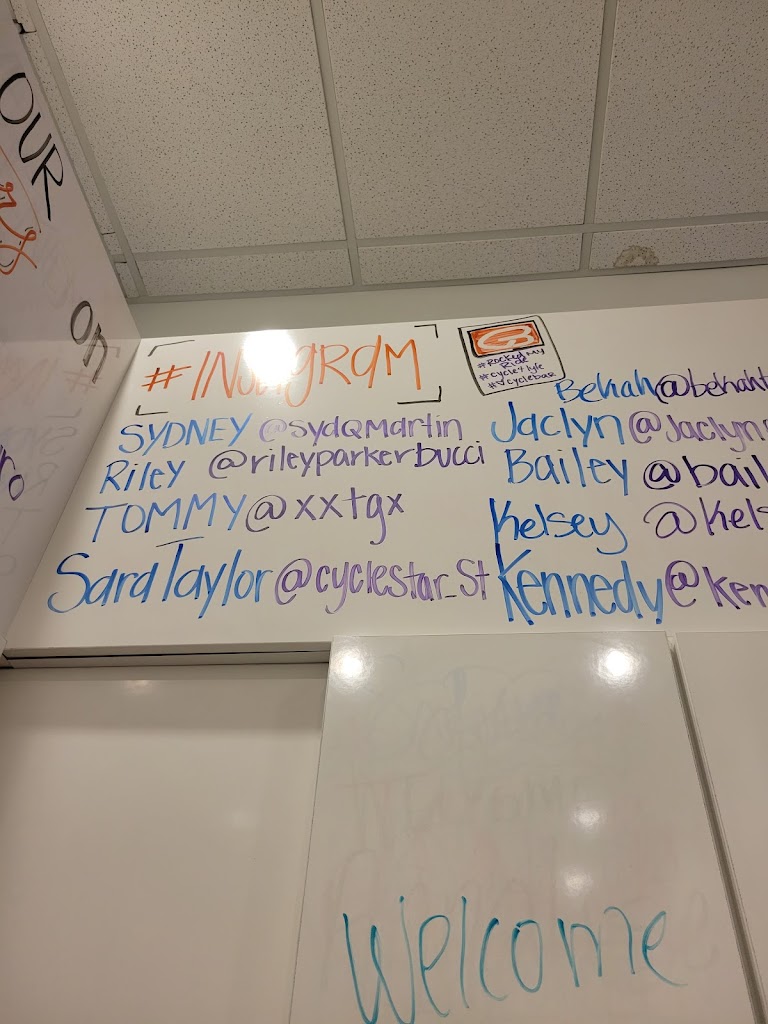 OUR
on
#INstagRaM
CB
#ROCKed MY
Ride
#cycle4life
#cyclebar
SYDNEY @sydQmartin
Riley @rileyparkerbucci
TOMMY @xxtgx
Sara Taylor @cyclestar_St
Bekah @bekaht
Jaclyn @jaclyn
Bailey @bail
Kelsey @kels
Kennedy @ken
Welcome